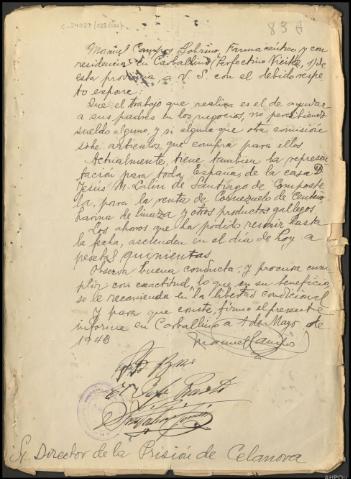 836
Manuel Campos Sobrino, Farmacéutico y con
residencia en Carballino (Perfectino Vieitez, 1) de
esta provincia a V. S. con el debido respe
to expone:
Que el trabajo que realiza es el de ayudar
a sus padres en los negocios, no percibiendo
sueldo alguno, y si alguna que otra comisión
sobre artículos que compra para ellos
Actualmente, tiene tambien la represen
tación para toda España de la casa D.
Jesus M. Lalin de Santiago de Composte
la, para la venta de Cornezuelo de Centeno
harina de linaza y otros productos gallegos
Los ahorros que ha podido reunir hasta
la fecha, ascienden en el día de hoy a
pesetas quinientas.
Observa buena conducta y procura cum
plir con exactitud, lo que en su beneficio
se le recomienda en la libertad condicional
Y para que conste, firmo el presente
informe en Carballino a 1 de Mayo de
1943
Manuel Campos
Sr. Director de la Prisión de Celanova